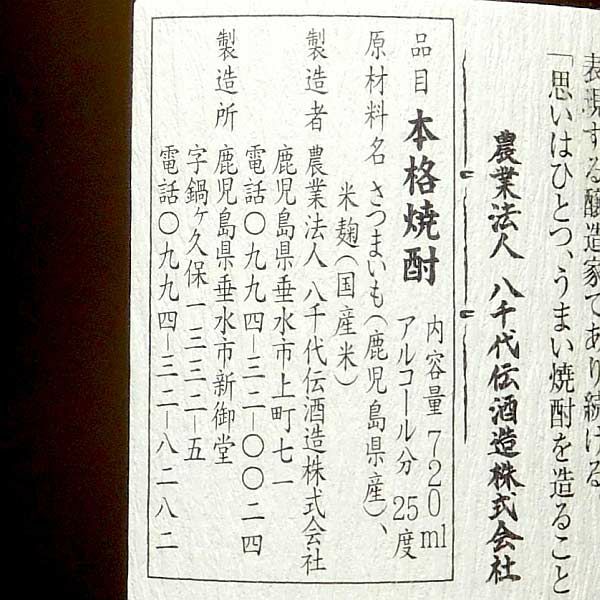 表現する醸造家であり続ける
「思いはひとつ、うまい焼酎を造ること
農業法人 八千代伝酒造株式会社
品目 本格焼酎
内容量 720ml
アルコール分 25度
原材料名 さつまいも(鹿児島県産)、
米麹(国産米)
製造者 農業法人 八千代伝酒造株式会社
鹿児島県垂水市上町七一
電話〇九九四−三二−〇〇二四
製造所 鹿児島県垂水市新御堂
字鍋ヶ久保一三三二−五
電話〇九九四−三二−八二八二